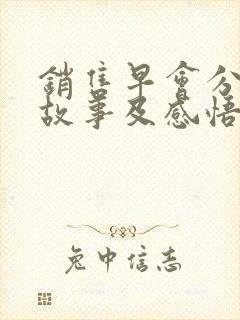 銷售早會分
故事及感悟
兔中信志